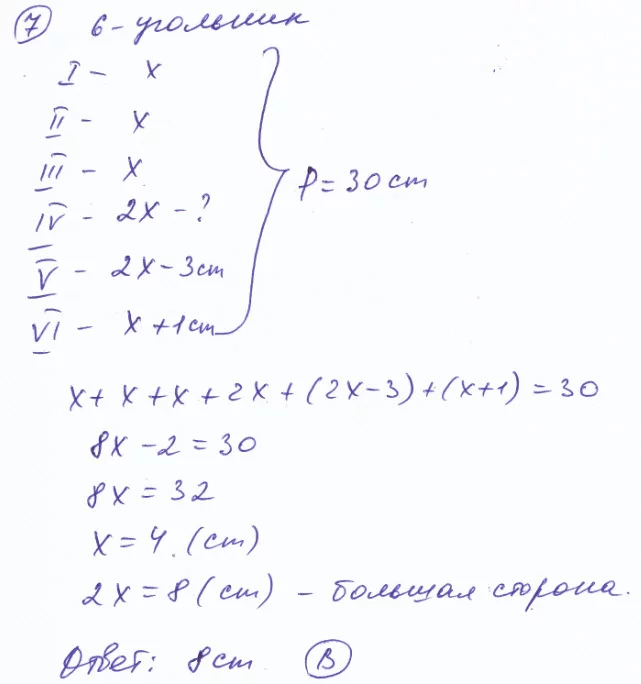 7 6-угольник
I - x
II - x
III - x
IV - 2x - ?
V - 2x - 3cm
VI - x + 1cm
P = 30 cm
x + x + x + 2x + (2x-3) + (x+1) = 30
8x - 2 = 30
8x = 32
x = 4. (cm)
2x = 8 (cm) - большая сторона.
Ответ: 8 cm B